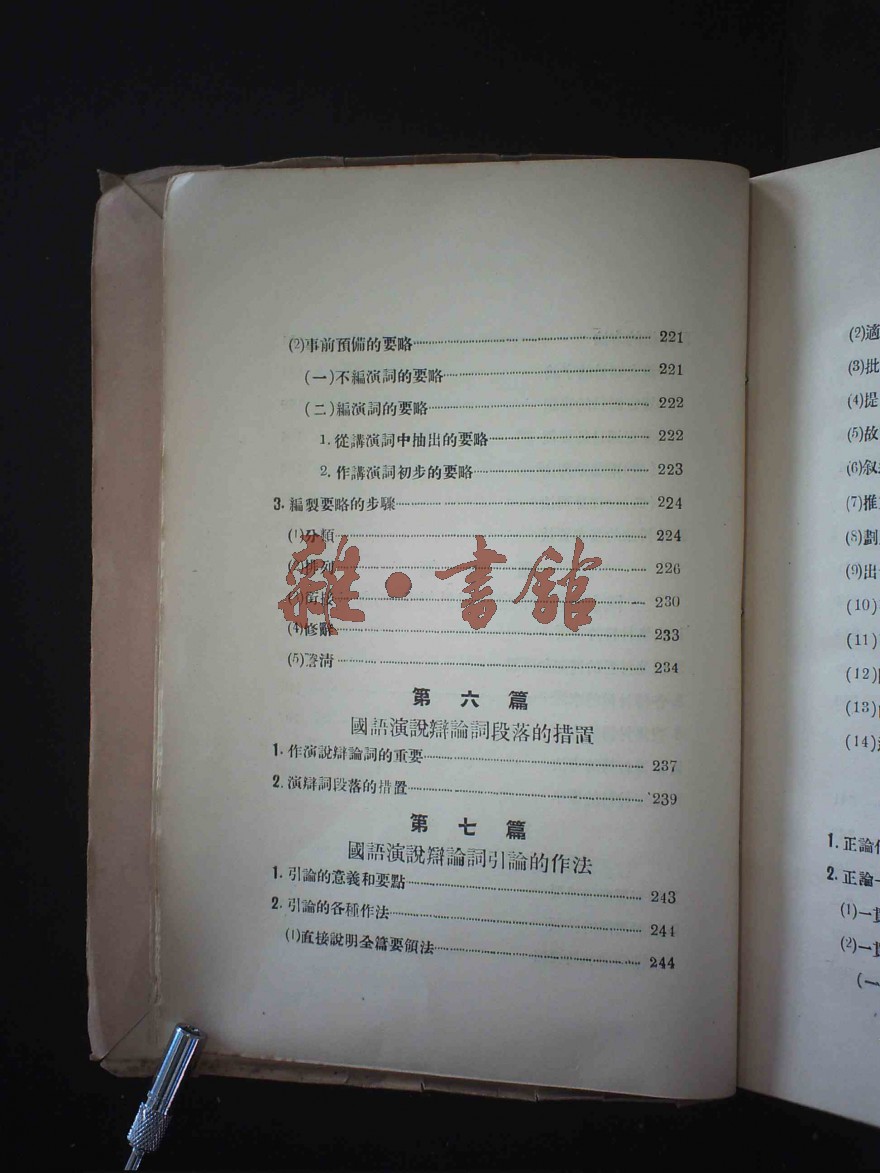 (2)事前預備的要略 221
(一)不編演詞的要略 221
(二)編演詞的要略 222
1. 從講演詞中抽出的要略 222
2. 作講演詞初步的要略 223
3. 編製要略的步驟 224
(1)分類 224
(2)排列 226
(3)銜接 230
(4)修辭 233
(5)謄清 234
第六篇
國語演說辯論詞段落的措置
1. 作演說辯論詞的重要 237
2. 演辯詞段落的措置 239
第七篇
國語演說辯論詞引論的作法
1. 引論的意義和要點 243
2. 引論的各種作法 244
(1)直接說明全篇要領法 244
雜·書館
(2)適
(3)批
(4)提
(5)故
(6)敘
(7)推
(8)劃
(9)出
(10)
(11)
(12)
(13)
(14)
1. 正論
2. 正論
(1)一貫
(2)一
(一